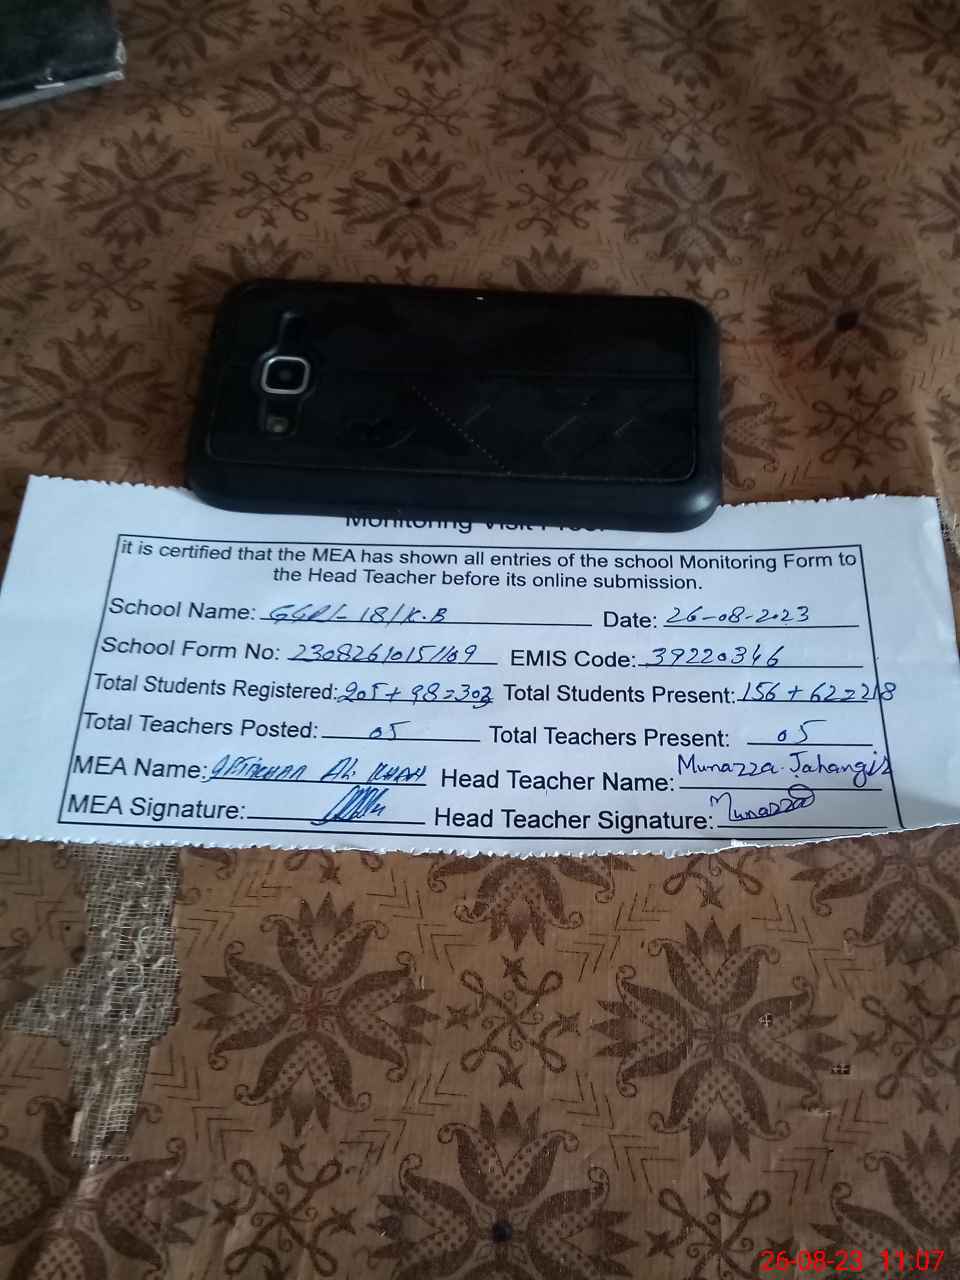 Monitoring Visit Proof
it is certified that the MEA has shown all entries of the school Monitoring Form to
the Head Teacher before its online submission.
School Name: GGP/- 18/K.B Date: 26-08-2023
School Form No: 23082610151109 EMIS Code: 39220346
Total Students Registered: 205+98=303 Total Students Present: 156+62=218
Total Teachers Posted: 05 Total Teachers Present: 05
MEA Name: Ali Khan Head Teacher Name: Munazza Jahangir
MEA Signature: Head Teacher Signature: Munazza
26-08-23 11:07